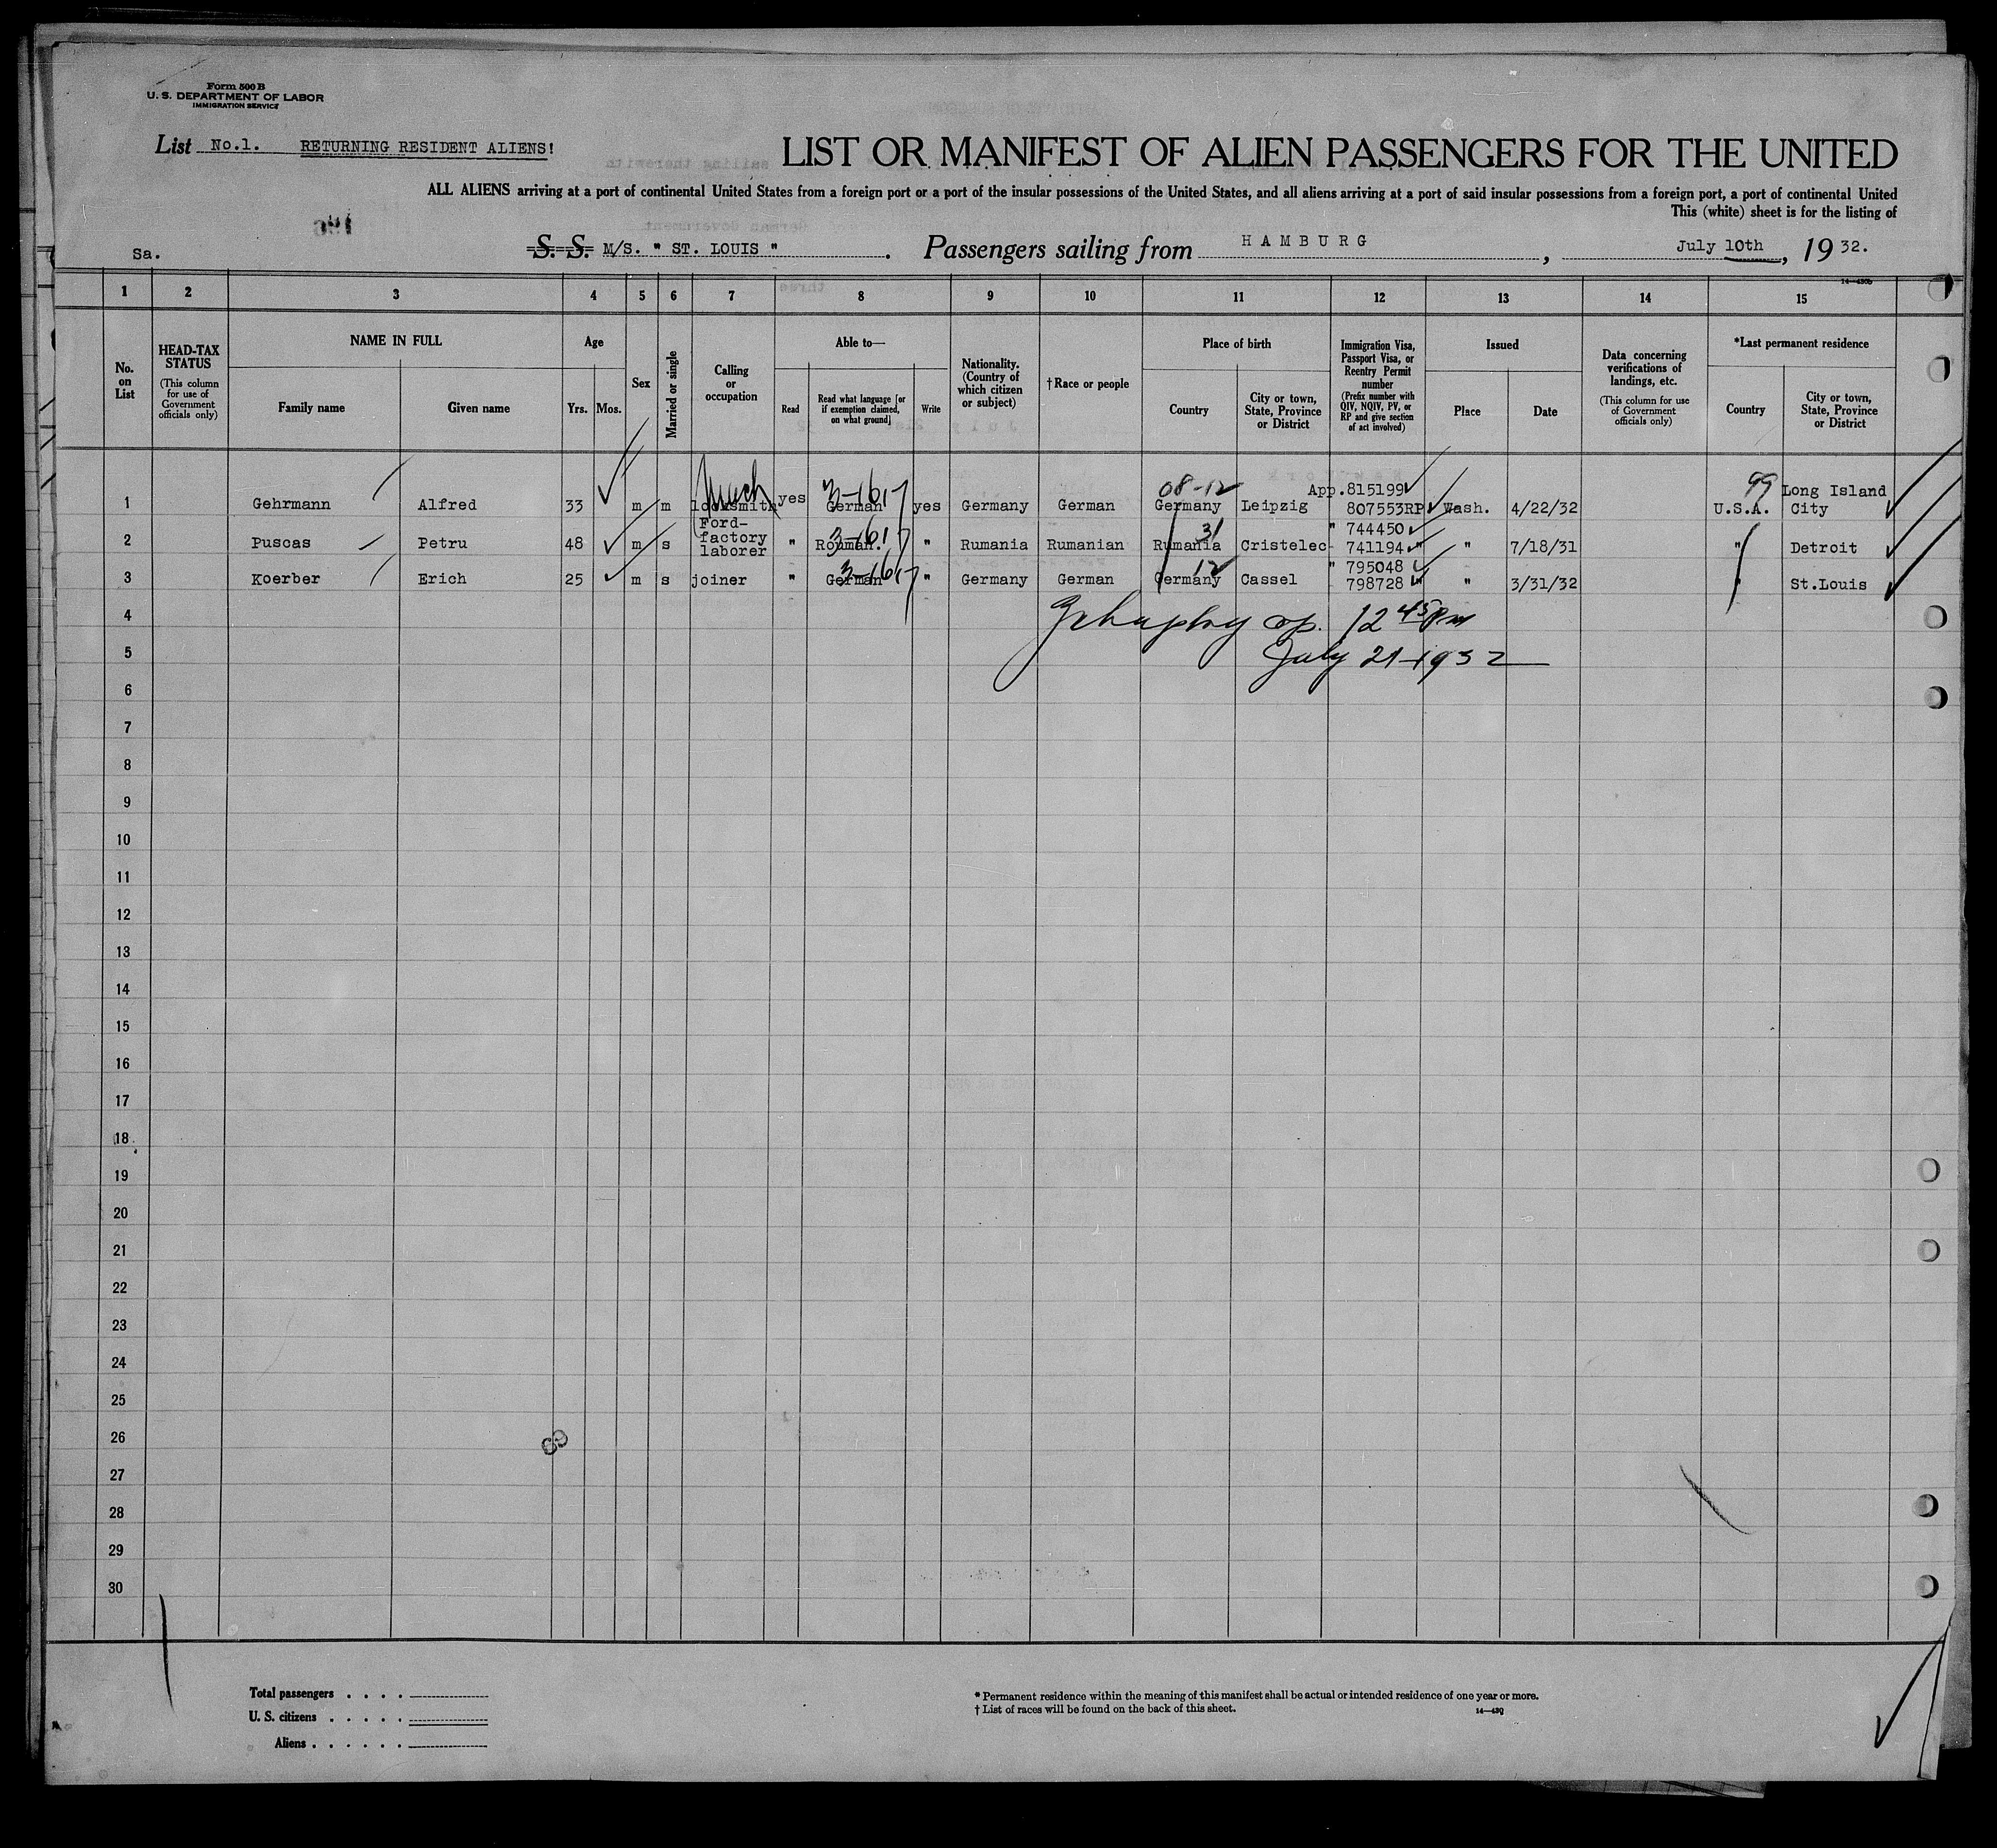 Form 500 B
U. S. DEPARTMENT OF LABOR
IMMIGRATION SERVICE
List No.1. RETURNING RESIDENT ALIENS!
LIST OR MANIFEST OF ALIEN PASSENGERS FOR THE UNITED
ALL ALIENS arriving at a port of continental United States from a foreign port or a port of the insular possessions of the United States, and all aliens arriving at a port of said insular possessions from a foreign port, a port of continental United
This (white) sheet is for the listing of
Sa. S. S. M/S. " ST. LOUIS " . Passengers sailing from HAMBURG , July 10th , 19 32.
14—430b
1 2 3 4 5 6 7 8 9 10 11 12 13 14 15
No. on List
HEAD-TAX STATUS
(This column for use of Government officials only)
NAME IN FULL
Family name Given name
Age
Yrs. Mos.
Sex
Married or single
Calling or occupation
Able to—
Read
Read what language [or if exemption claimed, on what ground]
Write
Nationality. (Country of which citizen or subject)
† Race or people
Place of birth
Country
City or town, State, Province or District
Immigration Visa, Passport Visa, or Reentry Permit number
(Prefix number with QIV, NQIV, PV, or RP and give section of act involved)
Issued
Place Date
Data concerning verifications of landings, etc.
(This column for use of Government officials only)
*Last permanent residence
Country
City or town, State, Province or District
08-12 App.815199 99 Long Island
1 Gehrmann Alfred 33 m m locksmith yes German yes Germany German Germany Leipzig 807553RP Wash. 4/22/32 U.S.A. City
3-1617
Ford- 31 " 744450
2 Puscas Petru 48 m s factory laborer " Rouman. " Rumania Rumanian Rumania Cristelec 741194 " " 7/18/31 " Detroit
3-1617
12 " 795048
3 Koerber Erich 25 m s joiner " German " Germany German Germany Cassel 798728 " " 3/31/32 " St.Louis
3-1617
4 12 45 Pm
5 July 21-1932
6
7
8
9
10
11
12
13
14
15
16
17
18
19
20
21
22
23
24
25
26
27
28
29
30
Total passengers . . . .
U. S. citizens . . . . .
Aliens . . . . . .
* Permanent residence within the meaning of this manifest shall be actual or intended residence of one year or more.
† List of races will be found on the back of this sheet.
14—430